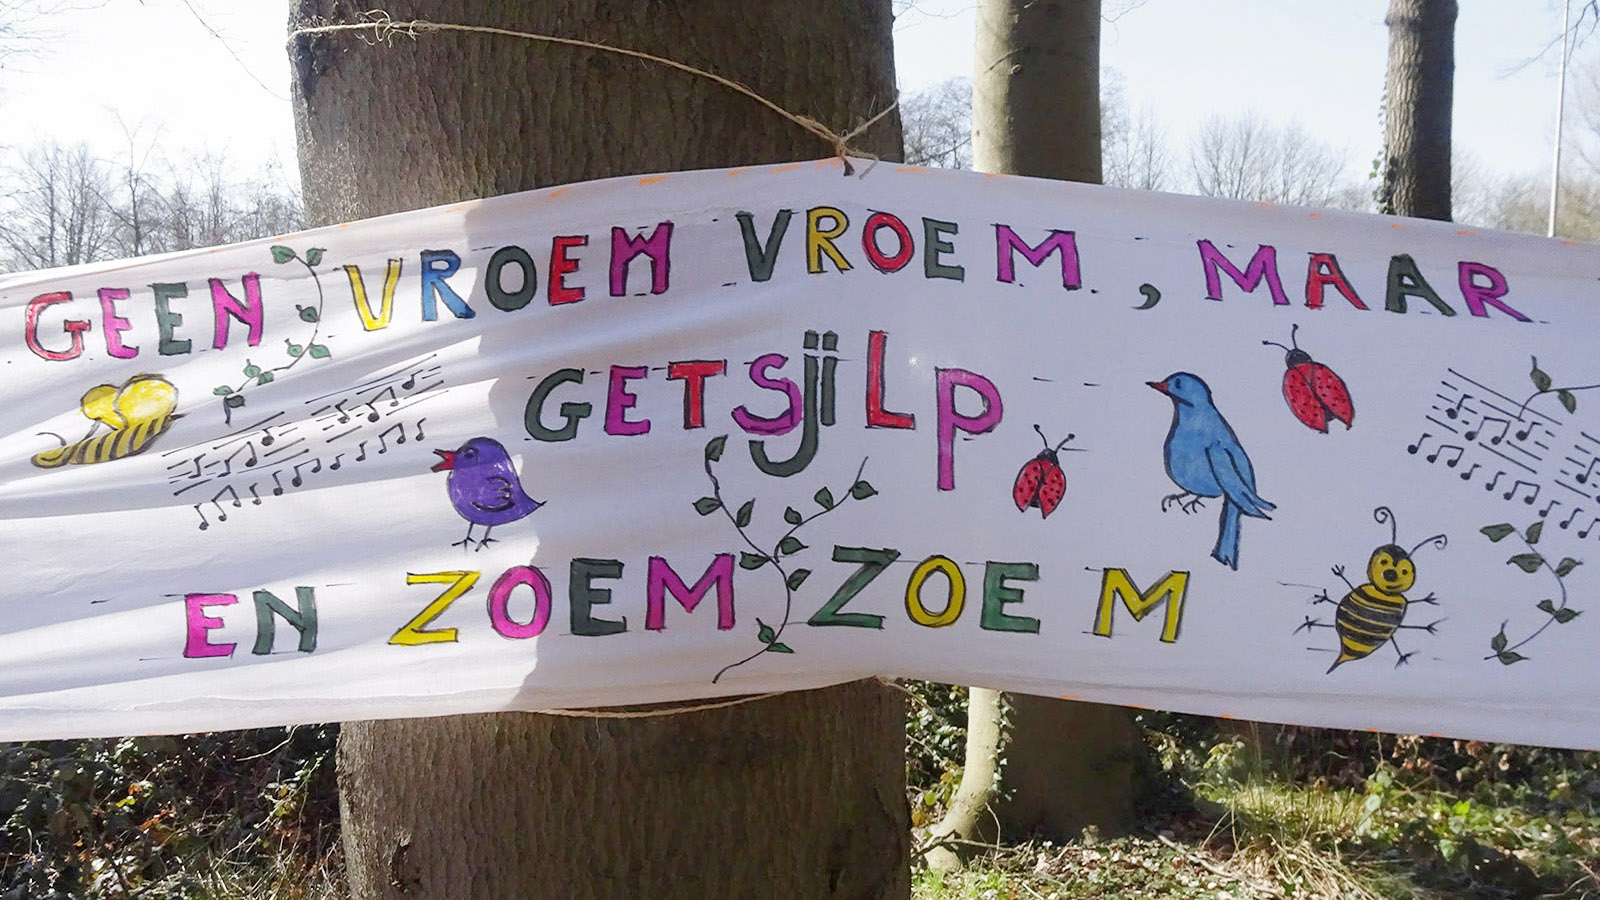 GEEN VROEM VROEM, MAAR
GETSJILP
EN ZOEM ZOEM